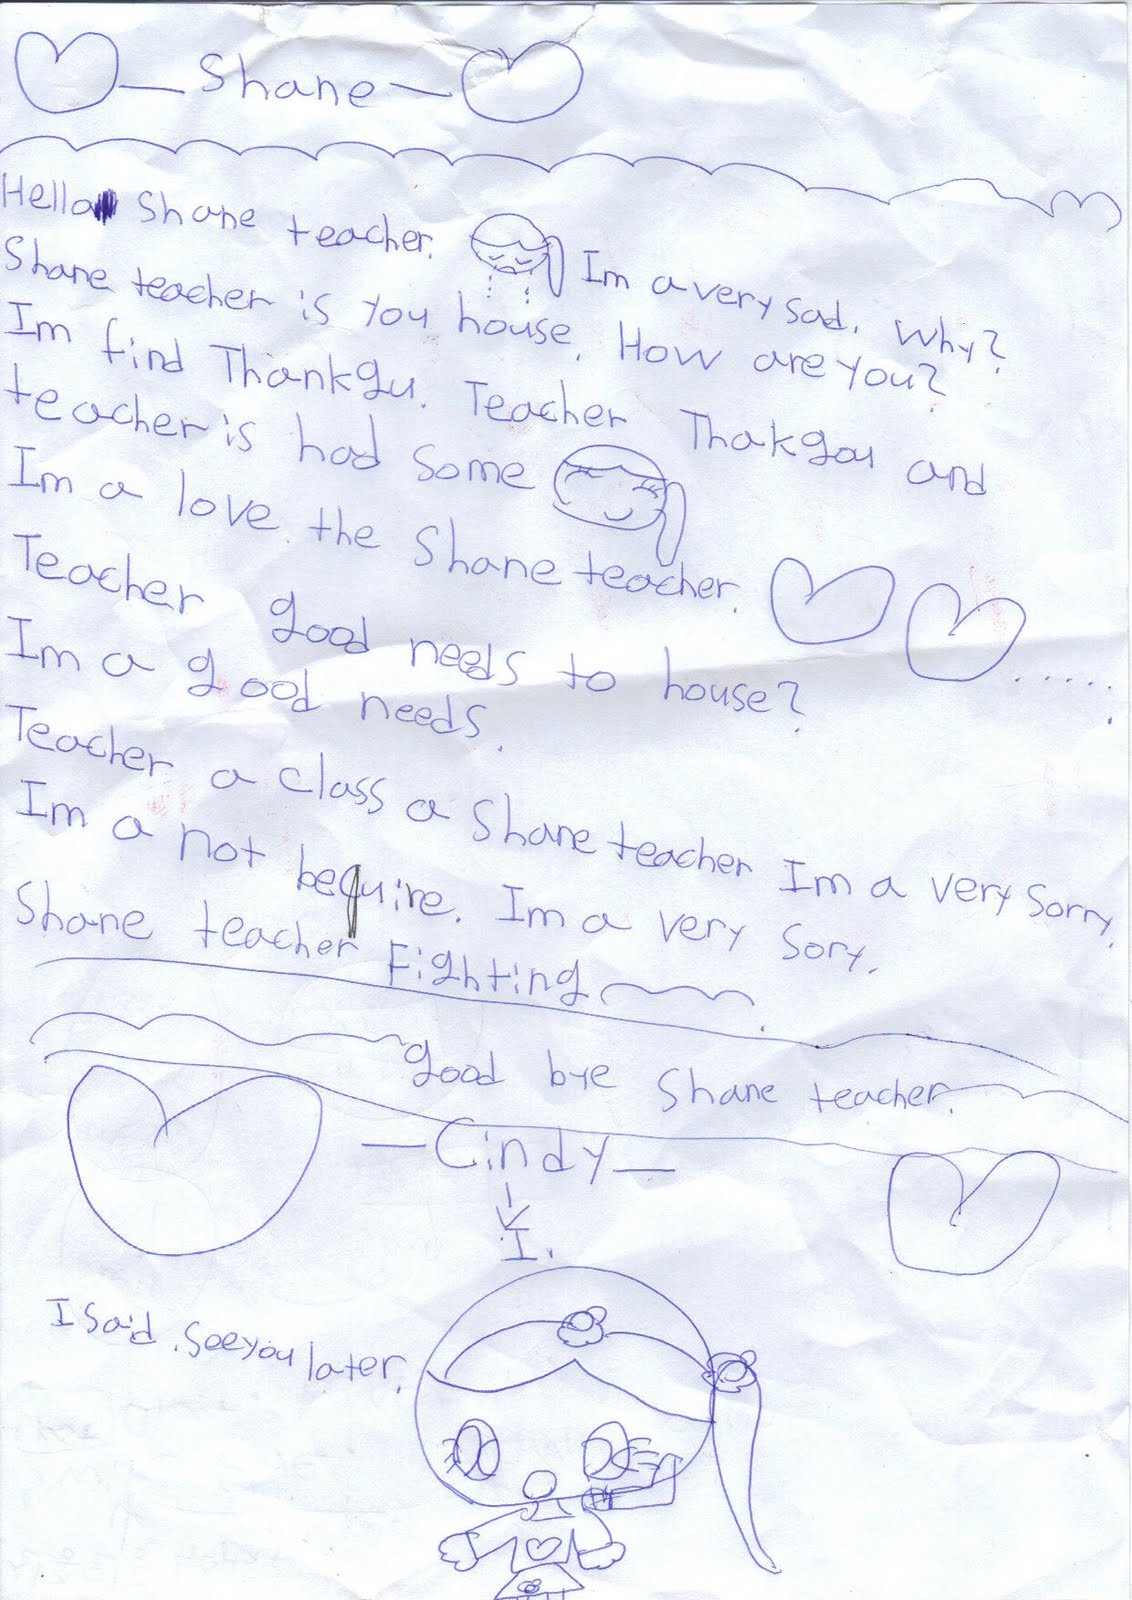 Shane
Hello Shane teacher. Im a very sad. Why?
Shane teacher is you house. How are you?
Im find Thankgu. Teacher Thakgou and
teacher is had some
Im a love the Shane teacher.
Teacher good needs to house?
Im a good needs.
Teacher a class a Shane teacher Im a very sorry.
Im a not bequire. Im a very sory.
Shane teacher Fighting
good bye Shane teacher.
Cindy
I.
I said. See you later.